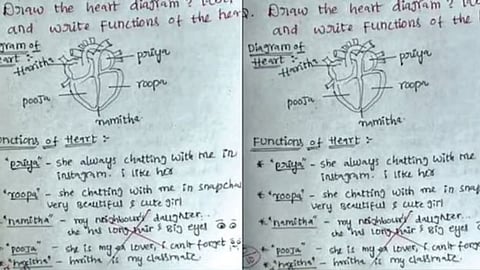 Draw the heart diagram?
and write functions of the hear
agram of
eart :-
Haritha
priya
roopa
pooja
namitha
unctions of Heart :-
"priya" - she always chatting with me in
instagram. i like her
"roopa" - she chatting with me in snapcha
very Beautiful & cute girl
"namitha" - my neighbour's daughter...
she has long hair & Big eyes
"pooja" - she is my lover, i can't forget
"haritha" - haritha is my classmate.
Q. Draw the heart diagram?
and write functions of the
Diagram of
Heart :-
Haritha
priya
roopa
pooja
namitha
Functions of Heart :-
* "priya" - she always chatting with me in
instagram. i like her
* "roopa" - she chatting with me in snap
very Beautiful & cute girl
* "namitha" - my neighbour's daughter...
she has long hair & Big eyes
* "pooja" - she is my lover, i can't forget
* "haritha" - haritha is my classmate.